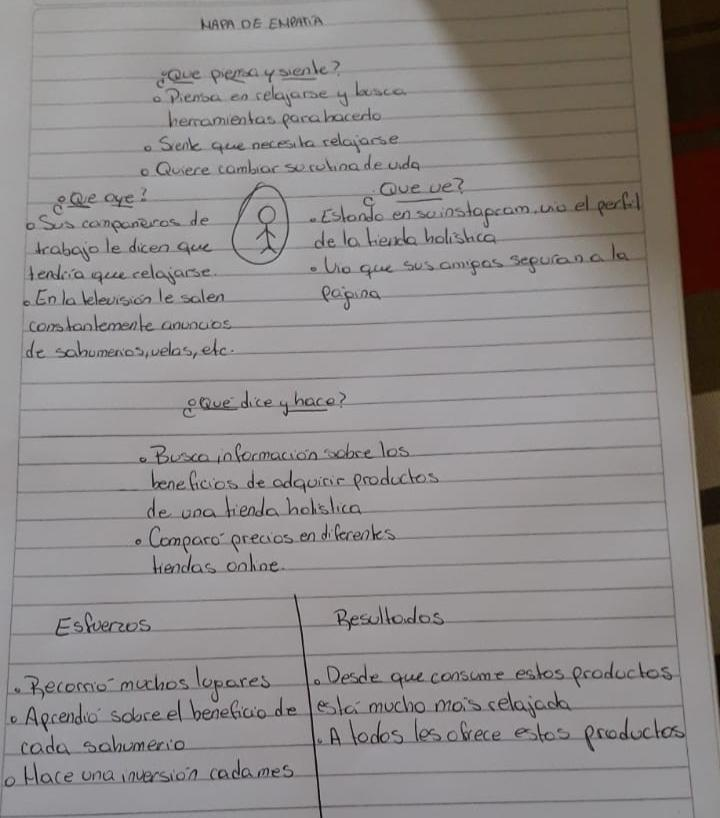 MAPA DE EMPATIA
¿Que piensa y siente?
o Piensa en relajarse y busca
herramientas para hacerlo
o Siente que necesita relajarse
o Quiere cambiar su rutina de vida
¿Que oye?
o Sus compañeros de
trabajo le dicen que
tendria que relajarse.
o En la televisión le salen
constantemente anuncios
de sahumerios, velas, etc.
¿Que ve?
• Estando en su instagram, vio el perfil
de la tienda holistica
• Vio que sus amigas seguian a la
página
¿Que dice y hace?
o Busca información sobre los
beneficios de adquirir productos
de una tienda holistica
• Comparó precios en diferentes
tiendas online.
Esfuerzos
• Recorrió muchos lugares
o Aprendió sobre el beneficio de
cada sahumerio
o Hace una inversión cada mes
Resultados
• Desde que consume estos productos
está más relajada
• A todos les ofrece estos productos